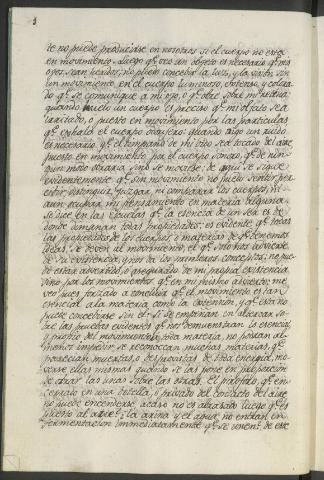 te no puede producirse en nosotros si el cuerpo no está
en movimiento. Luego qe. oso un objeto es necesario qe. mis
oyos sean heridos, no puedo concebir la luz, y la vision sin
un movimiento en el cuerpo luminoso, extenso, y colora
do qe. se comunique á mi ojo, ó qe. obre sobre mi retina:
quando huelo un cuerpo es preciso qe. mi olfato sea
irritado, o puesto en movimiento por las particulas
qe. exhala el cuerpo oloroso: quando oigo un ruido
es necesario qe. el timpano de mi oido sea tocado del aire
puesto en movimiento por el cuerpo sonoro, qe. de nin-
gun modo obrara si no se moviese: de aqui se sigue
evidentemente qe. sin movimiento no puedo sentir, per
cibir, distinguir, juzgar, ni comparar los cuerpos, ni
aun ocupar mi pensamiento en materia alguna.
Se dice en las Escuelas qe. la esencia de un sea es de
donde emanan todas propiedades: es evidente qe. todas
las propiedades de los cuerpos, ó materias de qe. tenemos
ideas, se deben al movimiento el qe. solo nos advierte
de su existencia, y nos da los primeros conceptos: no pue
do estar advertido, ó asegurado de mi propia existencia
sino por los movimientos qe. en mi mismo advierto: me
veo pues forzado á concluir qe. el movimiento es tan
esencial á la materia como la extension, y qe. esta no
puede concebirse sin el. Si se empeñan en
las pruebas evidentes qe. nos demuestran lo esencial
y propio del movimiento á toda materia, no podran al
menos impedir se reconozcan muchas materias qe.
parecian muertas, o desprovistas de toda energia, mo-
verse ellas mismas quando se las pone en proporcion
de obrar las unas sobre las otras. El piroforo qe. en-
cerrado en una botella, o privado del contacto del aire
no puede encenderse, acaso no es abrasado luego qe. es
puesto al aire? ¿la arina y el agua no entran en
fermentacion inmediatamente qe. se de este